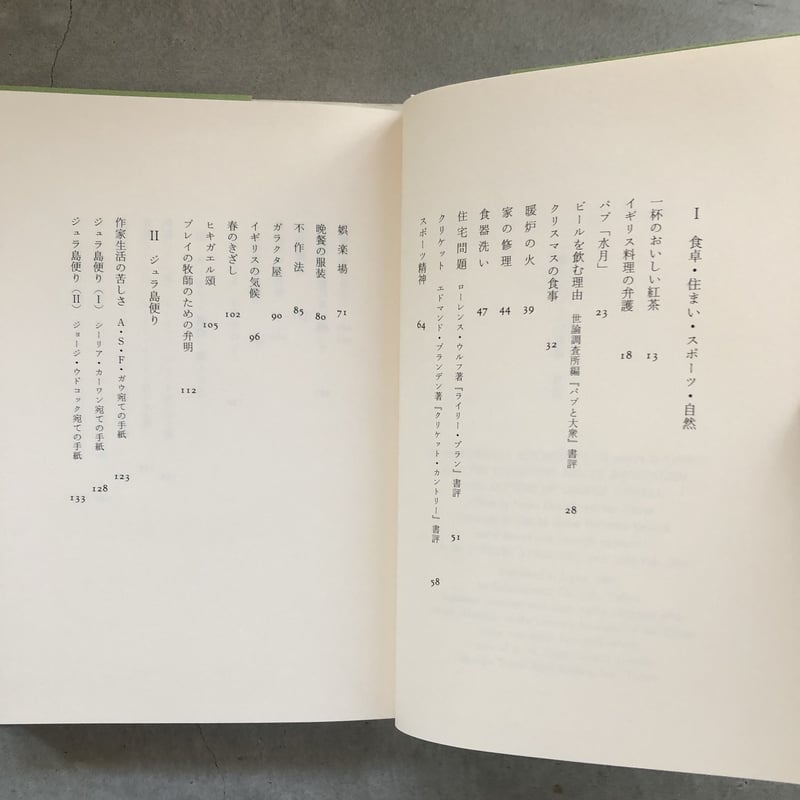 I 食卓・住まい・スポーツ・自然
一杯のおいしい紅茶 13
イギリス料理の弁護 18
パブ「水月」 23
ビールを飲む理由 世論調査所編『パブと大衆』書評 28
クリスマスの食事 32
暖炉の火 39
家の修理 44
食器洗い 47
住宅問題 ローレンス・ウルフ著『ライリー・プラン』書評 51
クリケット エドマンド・ブランデン著『クリケット・カントリー』書評 58
スポーツ精神 64
娯楽場 71
晩餐の服装 80
不作法 85
ガラクタ屋 90
イギリスの気候 96
春のきざし 102
ヒキガエル頌 105
ブレイの牧師のための弁明 112
II ジュラ島便り
作家生活の苦しさ A・S・F・ガウ宛ての手紙 123
ジュラ島便り（I） シーリア・カーワン宛ての手紙 128
ジュラ島便り（II） ジョージ・ウドコック宛ての手紙 133